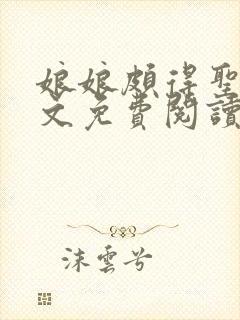 娘娘頗得聖
文免費閱讀
沫雲兮